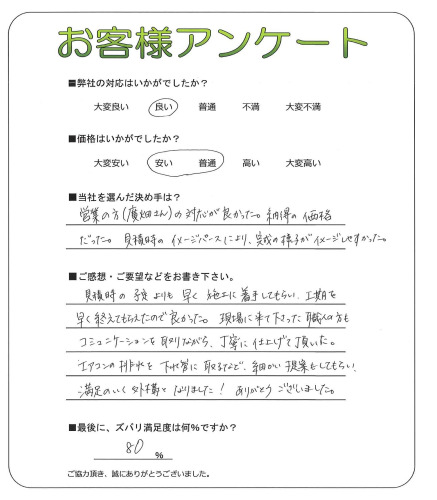 お客様アンケート
■弊社の対応はいかがでしたか？
大変良い 良い 普通 不満 大変不満
■価格はいかがでしたか？
大変安い 安い 普通 高い 大変高い
■当社を選んだ決め手は？
営業の方(廣畑さん)の対応が良かった。納得の価格
だった。見積時のイメージパースにより、完成の様子がイメージしやすかった。
■ご感想・ご要望などをお書き下さい。
見積時の予定よりも早く施工に着手してもらい、工期を
早く終えてもらえたので良かった。現場に来て下さった職人の方も
コミュニケーションを取りながら、丁寧に仕上げて頂いた。
エアコンの排水を下水管に取るなど、細かい提案もしてもらい、
満足のいく外構となりました！ ありがとうございました。
■最後に、ズバリ満足度は何％ですか？
80 ％
ご協力頂き、誠にありがとうございました。